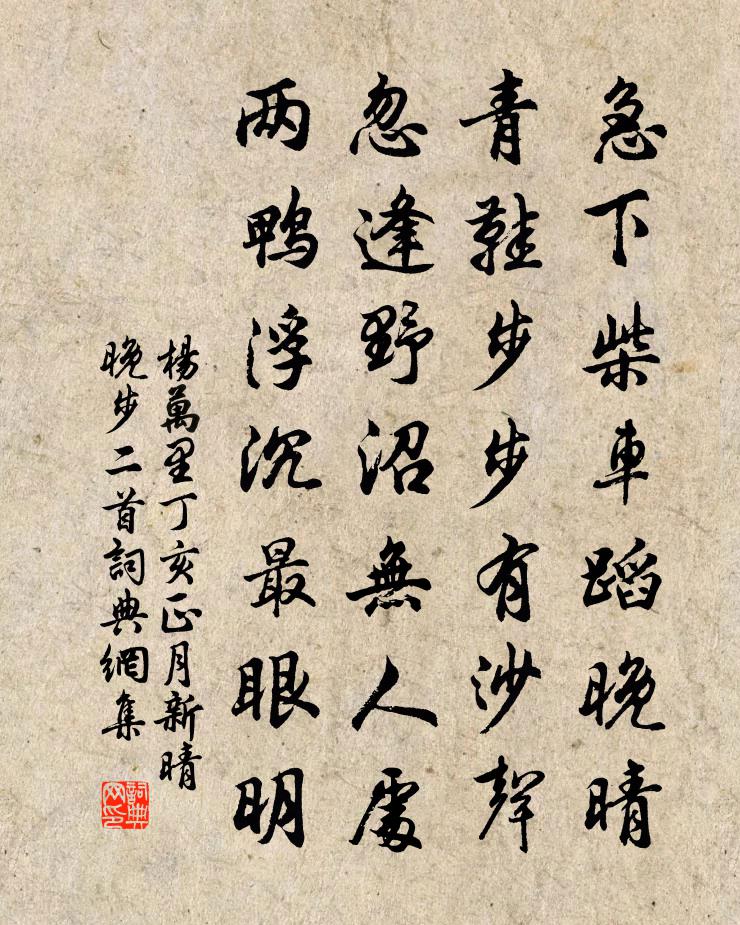 急下柴車蹈晚晴
青鞋步步有沙聲
忽逢野沼無人處
两鸭浮沉最眼明
楊萬里丁亥正月新晴
晚步二首詞典網集
詞典网印